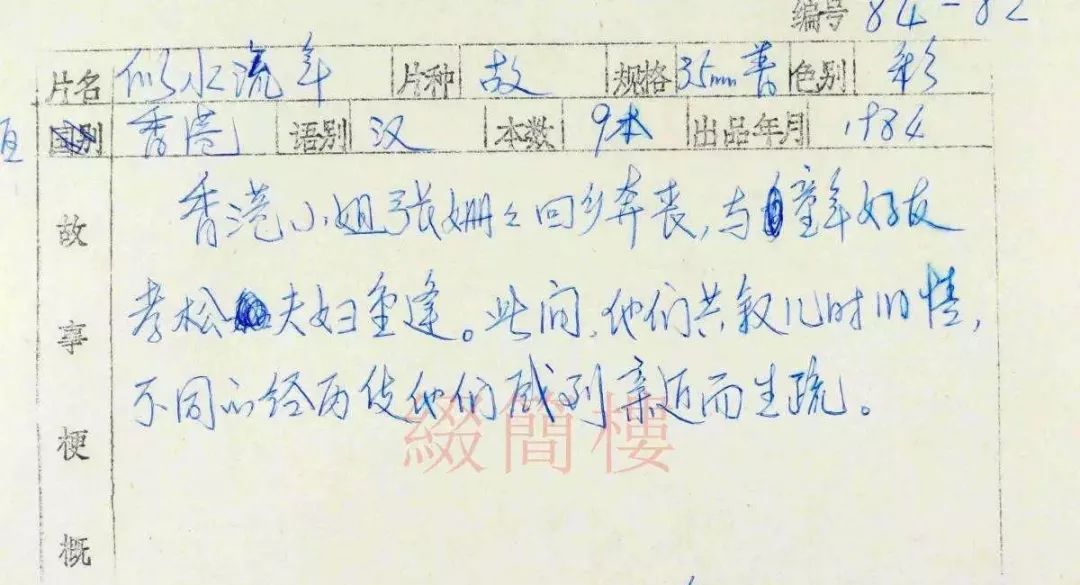 编号 84-82
片名 似水流年 片种 故 规格 35mm普 色别 彩
国别 香港 语别 汉 本数 9本 出品年月 1984
故事梗概
香港小姐张姗々回乡奔丧,与童年好友
孝松夫妇重逢。此间,他们共叙儿时旧情,
不同的经历使他们感到亲近而生疏。
綴簡樓